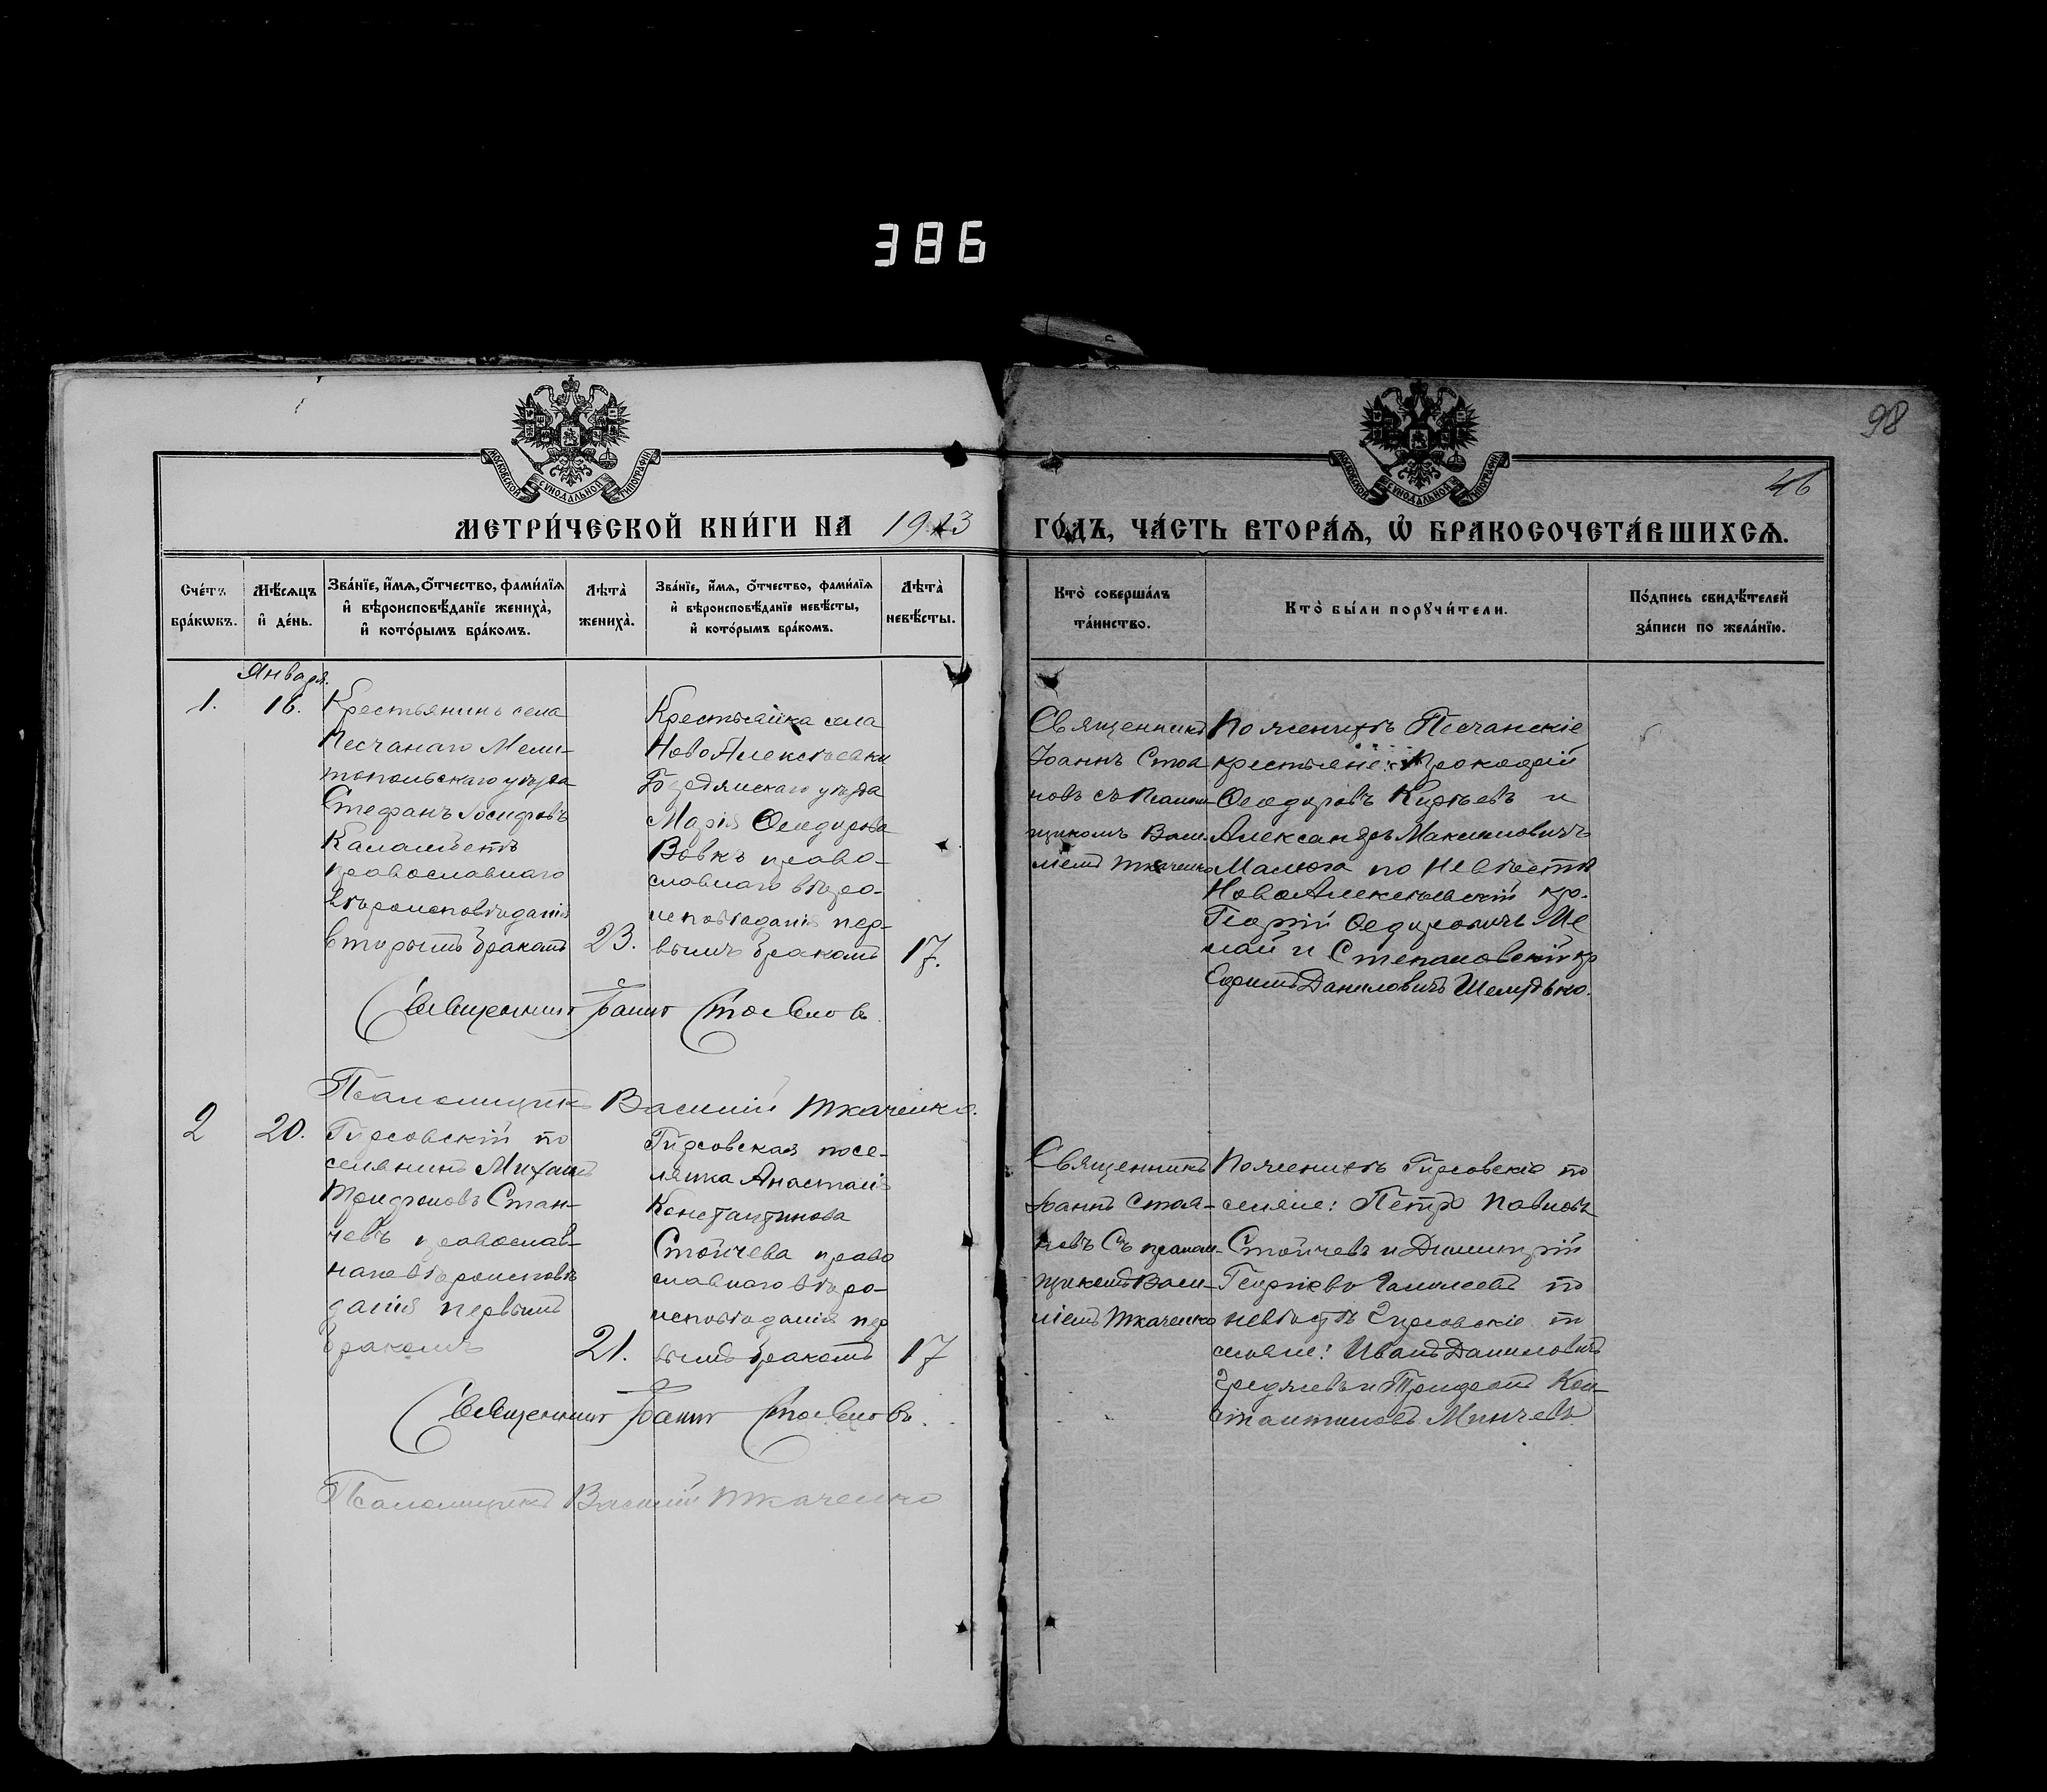 386
98
46
МОСКОВСКОЙ СѴНОДАЛЬНОЙ ТИПОГРАФІИ
МОСКОВСКОЙ СѴНОДАЛЬНОЙ ТИПОГРАФІИ
МЕТРИ́ЧЕСКОЙ КНИ́ГИ НА 1913 ГО́ДЪ, ЧА́СТЬ ВТОРА́Ѧ, Ѡ҆ БРАКОСОЧЕТА́ВШИХСѦ.
Сче́тъ
бра́кѡвъ.
Мѣ́сѧцъ
и҆ де́нь.
Зва́нїе, и҆́мѧ, ѻ҆́тчество, фами́лїѧ
и҆ вѣроисповѣ́данїе жениха̀,
и҆ кото́рымъ бра́комъ.
Лѣта̀
жениха̀.
Зва́нїе, и҆́мѧ, ѻ҆́тчество, фами́лїѧ
и҆ вѣроисповѣ́данїе невѣ́сты,
и҆ кото́рымъ бра́комъ.
Лѣта̀
невѣ́сты.
Кто̀ соверша́лъ
та́инство.
Кто̀ бы́ли порꙋчи́тели.
По́дпись свидѣ́телей
за́писи по жела́нїю.
Января.
1.
16.
Крестьянинъ села
Песчанаго Мели-
топольскаго уѣзда
Стефанъ Іосифовъ
православнаго
вѣроисповѣданія
вторымъ бракомъ
23.
Крестьянка села
НовоАлексѣевки
Бердянскаго уѣзда
Марія Ѳеодорова
Вовкъ право-
славнаго вѣро-
исповѣданія пер-
вымъ бракомъ
17.
Священникъ
Іоаннъ Стоя
новъ съ псалом
щикомъ Васи
ліемъ Ткаченко
По женихѣ Песчанскіе
крестьяне:
Ѳеодоровъ и
Александръ Максимовичъ
Малюга по невѣстѣ
НовоАлексѣевскій кр.
Георгій Ѳедоровичъ Ме
лай и Степановскій кр
Ефимъ Даниловичъ
Священникъ Іоаннъ Стояновъ
Псаломщикъ Василій Ткаченко.
2
20.
Гирсовскій по
селянинъ Михаилъ
Трифоновъ Стан-
чевъ православ-
наго вѣроисповѣ
данія первымъ
бракомъ
21.
Гирсовская посе-
лянка Анастасія
Константинова
Стойчева право
славнаго вѣро-
исповѣданія пер
вымъ бракомъ
17
Священникъ
Іоаннъ Стоя-
новъ съ псалом-
щикомъ Васи-
ліемъ Ткаченко
По женихѣ Гирсовскіе по
селяне: Петръ Павловъ
Стойчевъ и Димитрій
Георгіевъ по
невѣстѣ Гирсовскіе по
селяне: Иванъ Даниловичъ
и Трифонъ Кон-
стантиновъ Минчевъ
Священникъ Іоаннъ Стояновъ.
Псаломщикъ Василій Ткаченко